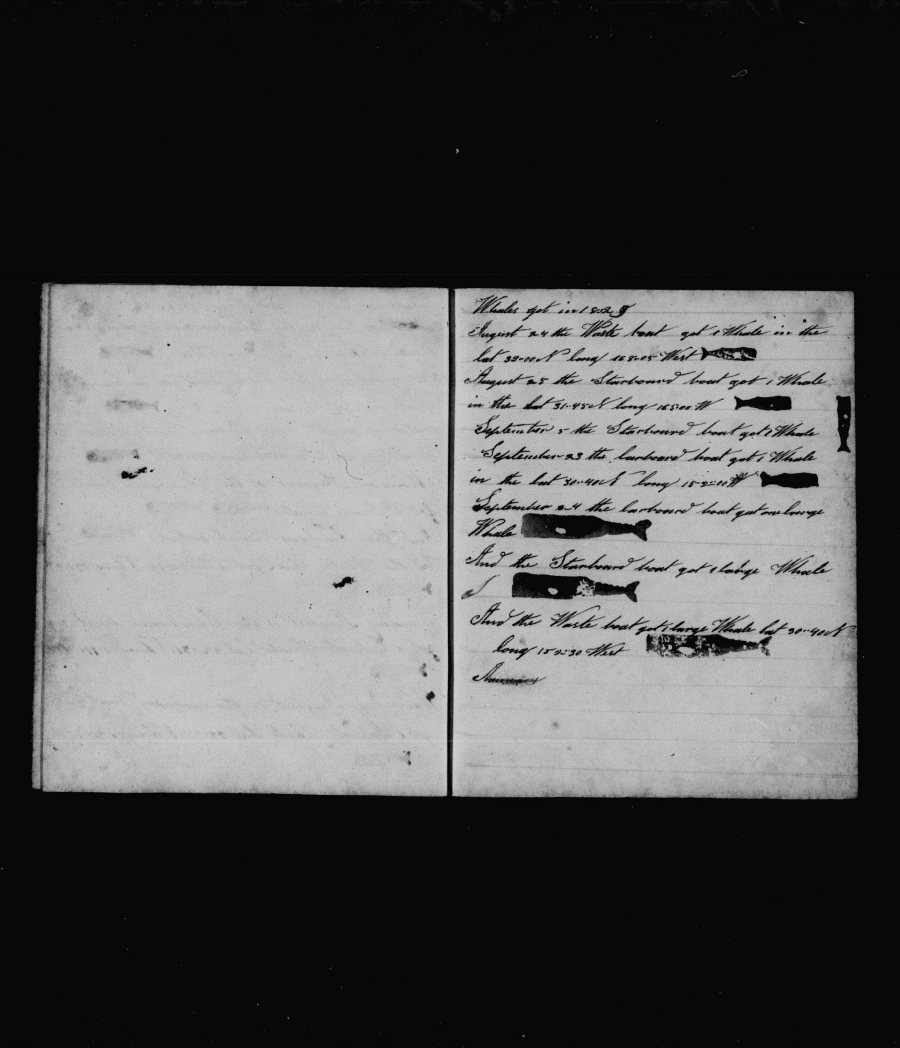 Whales got in 18
August 24 the Waste boat got 1 Whale in the
lat 33-00 N long 158-05 West
August 25 the Starboard boat got 1 Whale
in the lat 31-45 N long 155 00 W
September 5 the Starboard boat got 1 Whale
September 23 the larboard boat got 1 Whale
in the lat 30-40 N long W
September 24 the larboard boat got one large
Whale
And the Starboard boat got 1 large Whale
And the Waste boat got 1 large Whale lat 30-40 N
long 152-30 West